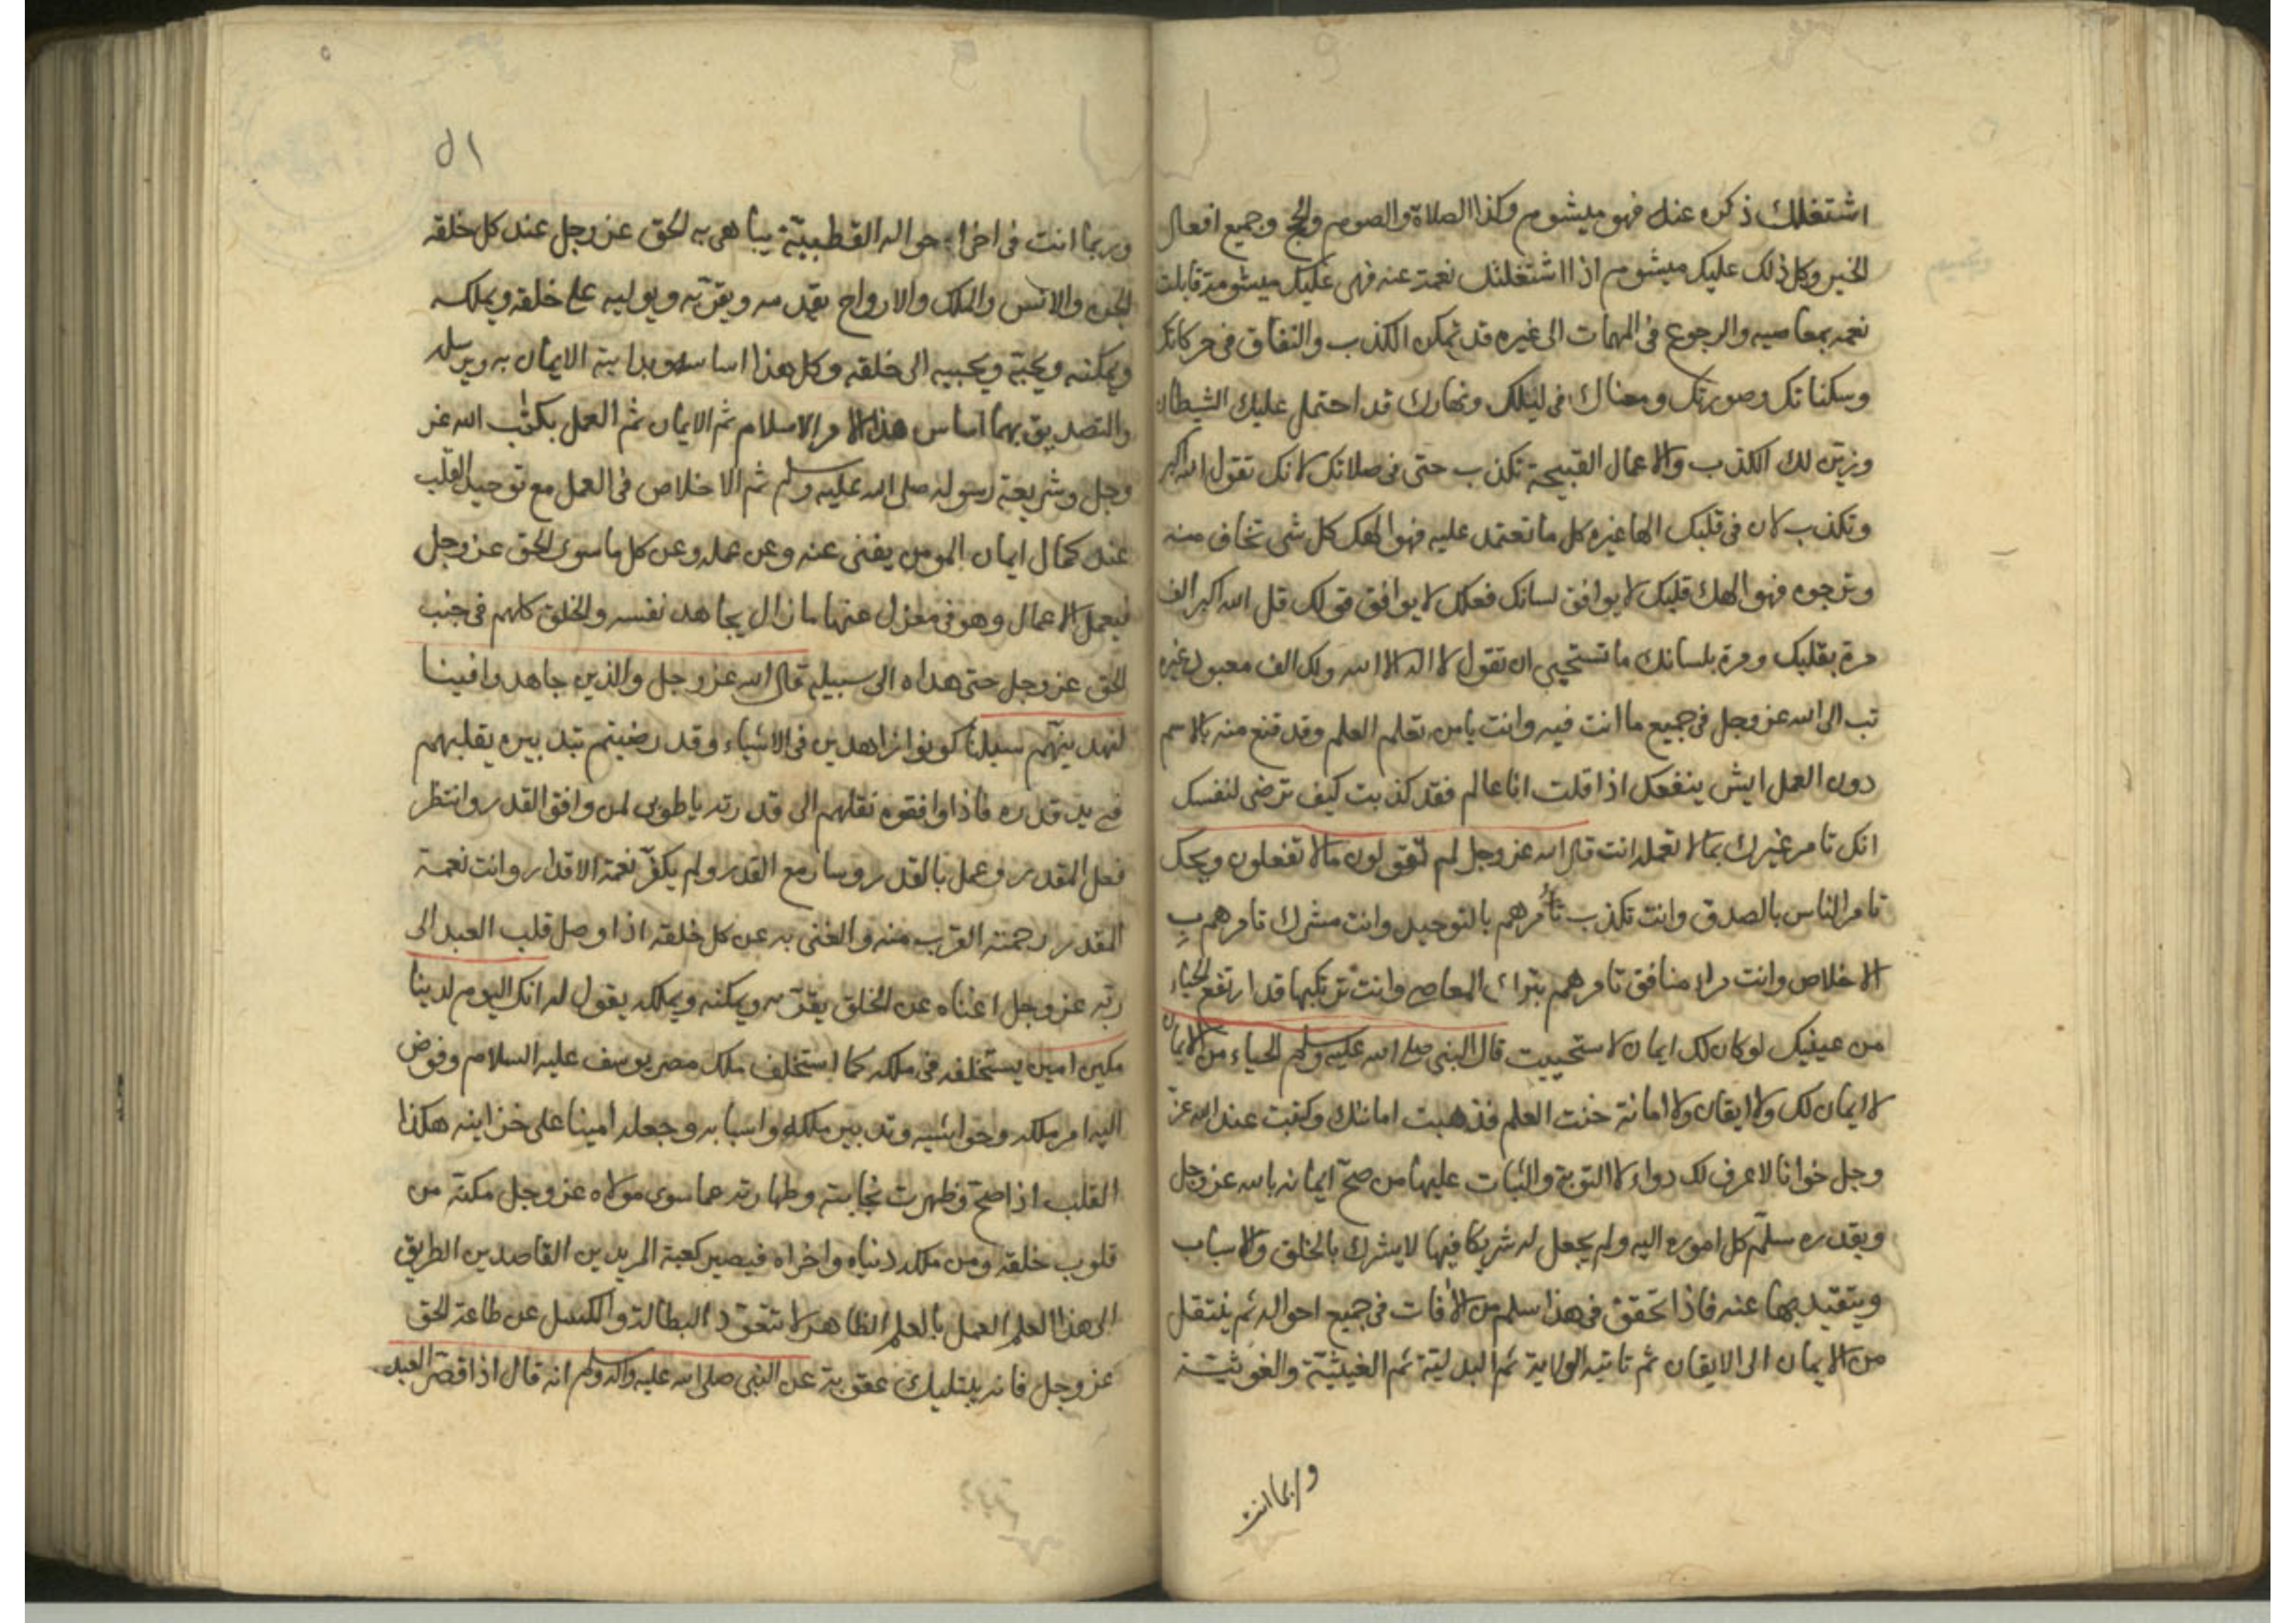 اشتغلك ذكره عنك فهو ميشوم وكذا الصلاة والصوم والحج وجميع افعال
الخير وكل ذلك عليك ميشوم اذا اشتغلتك نعمته عنه فهى عليك ميشومة قابلت
نعمه بمعاصيه والرجوع فى المهمات الى غيره قد تمكن الكذب والنفاق فى حركاتك
وسكناتك وصورتك ومعناك فى ليلك ونهارك قد احتمل عليك الشيطان
وزين لك الكذب والاعمال القبيحة تكذب حتى فى صلاتك لانك تقول الله اكبر
وتكذب لان فى قلبك الها غيره كل ما تعتمد عليه فهو الهك كل شى تخاف منه
وترجوه فهو الهك قلبك لا يوافق لسانك فعلك لا يوافق قولك قل الله اكبر الف
مرة بقلبك ومرة بلسانك ما تستحيى ان تقول لا اله الا الله ولك الف معبود غيره
تب الى الله عز وجل فى جميع ما انت فيه وانت يا من تعلم العلم وقد قنع منه بالاسم
دون العمل ايش ينفعك اذا قلت انا عالم فقد كذبت كيف ترضى لنفسك
انك تامر غيرك بما لا تعمله انت قال الله عز وجل لم تقولون ما لا تفعلون ويحك
تامر الناس بالصدق وانت تكذب تأمرهم بالتوحيد وانت مشرك تامرهم ب
الاخلاص وانت مراء منافق تامرهم بترك المعاصى وانت ترتكبها قد ارتفع الحياء
من عينيك لو كان لك ايمان لاستحييت قال النبى صلى الله عليه وسلم الحياء من الايمان
لا ايمان لك ولا ايقان ولا امانة خنت العلم فذهبت امانتك وكتبت عند الله عز
وجل خوانا لا عرف لك دواء الا التوبة والثبات عليها من صحّ ايمانه بالله عز وجل
وبقدره سلّم كل اموره اليه ولم يجعل له شريكا فيها لا يشرك بالخلق والاسباب
ويتقيد بها عنه فاذا تحقق فى هذا سلم من الافات فى جميع احواله ثم ينتقل
من الايمان الى الايقان ثم تاتيه الولاية ثم البدلية ثم الغيثيّة والغوثيّة
وربما انت
٥١
وربما انت فى اخر احواله القطبيّة يباهى به الحق عز وجل عند كل خلقه
الجن والانس والملك والارواح يقدمه ويقربه ويوليه على خلقه ويملكه
ويمكنه ويحبه ويحببه الى خلقه وكل هذا اساسه وبداية الايمان به وبرسله
والتصديق بهما اساس هذا الامر الاسلام ثم الايمان ثم العمل بكتب الله عز
وجل وشريعة رسوله صلى الله عليه وسلم ثم الاخلاص فى العمل مع توحيد القلب
عند كمال ايمان المومن يفنى عنه وعن عمله وعن كل ما سوى الحق عز وجل
فيعمل الاعمال وهو فى معزل عنها ما زال يجاهد نفسه والخلق كلهم فى جنب
الحق عز وجل حتى هداه الى سبيله قال الله عز وجل والذين جاهدوا فينا
لنهدينّهم سبلنا كونوا زاهدين فى الاشياء وقد رضيتم بتدبيره يقلبهم
فى يد قدره فاذا وافقوه نقلهم الى قدرته يا طوبى لمن وافق القدر وانتظر
فعل المقدر وعمل بالقدر وسار مع القدر ولم يكفر نعمة الاقدار وانت نعمة
المقدر رحمته القرب منه والغنى به عن كل خلقه اذا وصل قلب العبد الى
ربّه عز وجل اغناه عن الخلق يقرّبه ويمكنه ويملكه يقول له انك اليوم لدينا
مكين امين يستخلفه فى ملكه كما استخلف ملك مصر يوسف عليه السلام وفوض
اليه امر ملكه وحواشيه وتدبير ملكه واسبابه وجعله امينا على خزاينه هكذا
القلب اذا صحّ وظهرت نجابته وطهارته عما سوى مولاه عز وجل مكنه من
قلوب خلقه ومن ملكه دنياه واخراه فيصير كعبة المريدين القاصدين الطريق
الى هذا العلم العمل بالعلم الظاهر لا تتعوّد البطالة والكسل عن طاعة الحق
عز وجل فانه يبتليك عقوبة عن النبى صلى الله عليه واله وسلم انه قال اذا قصّر العبد